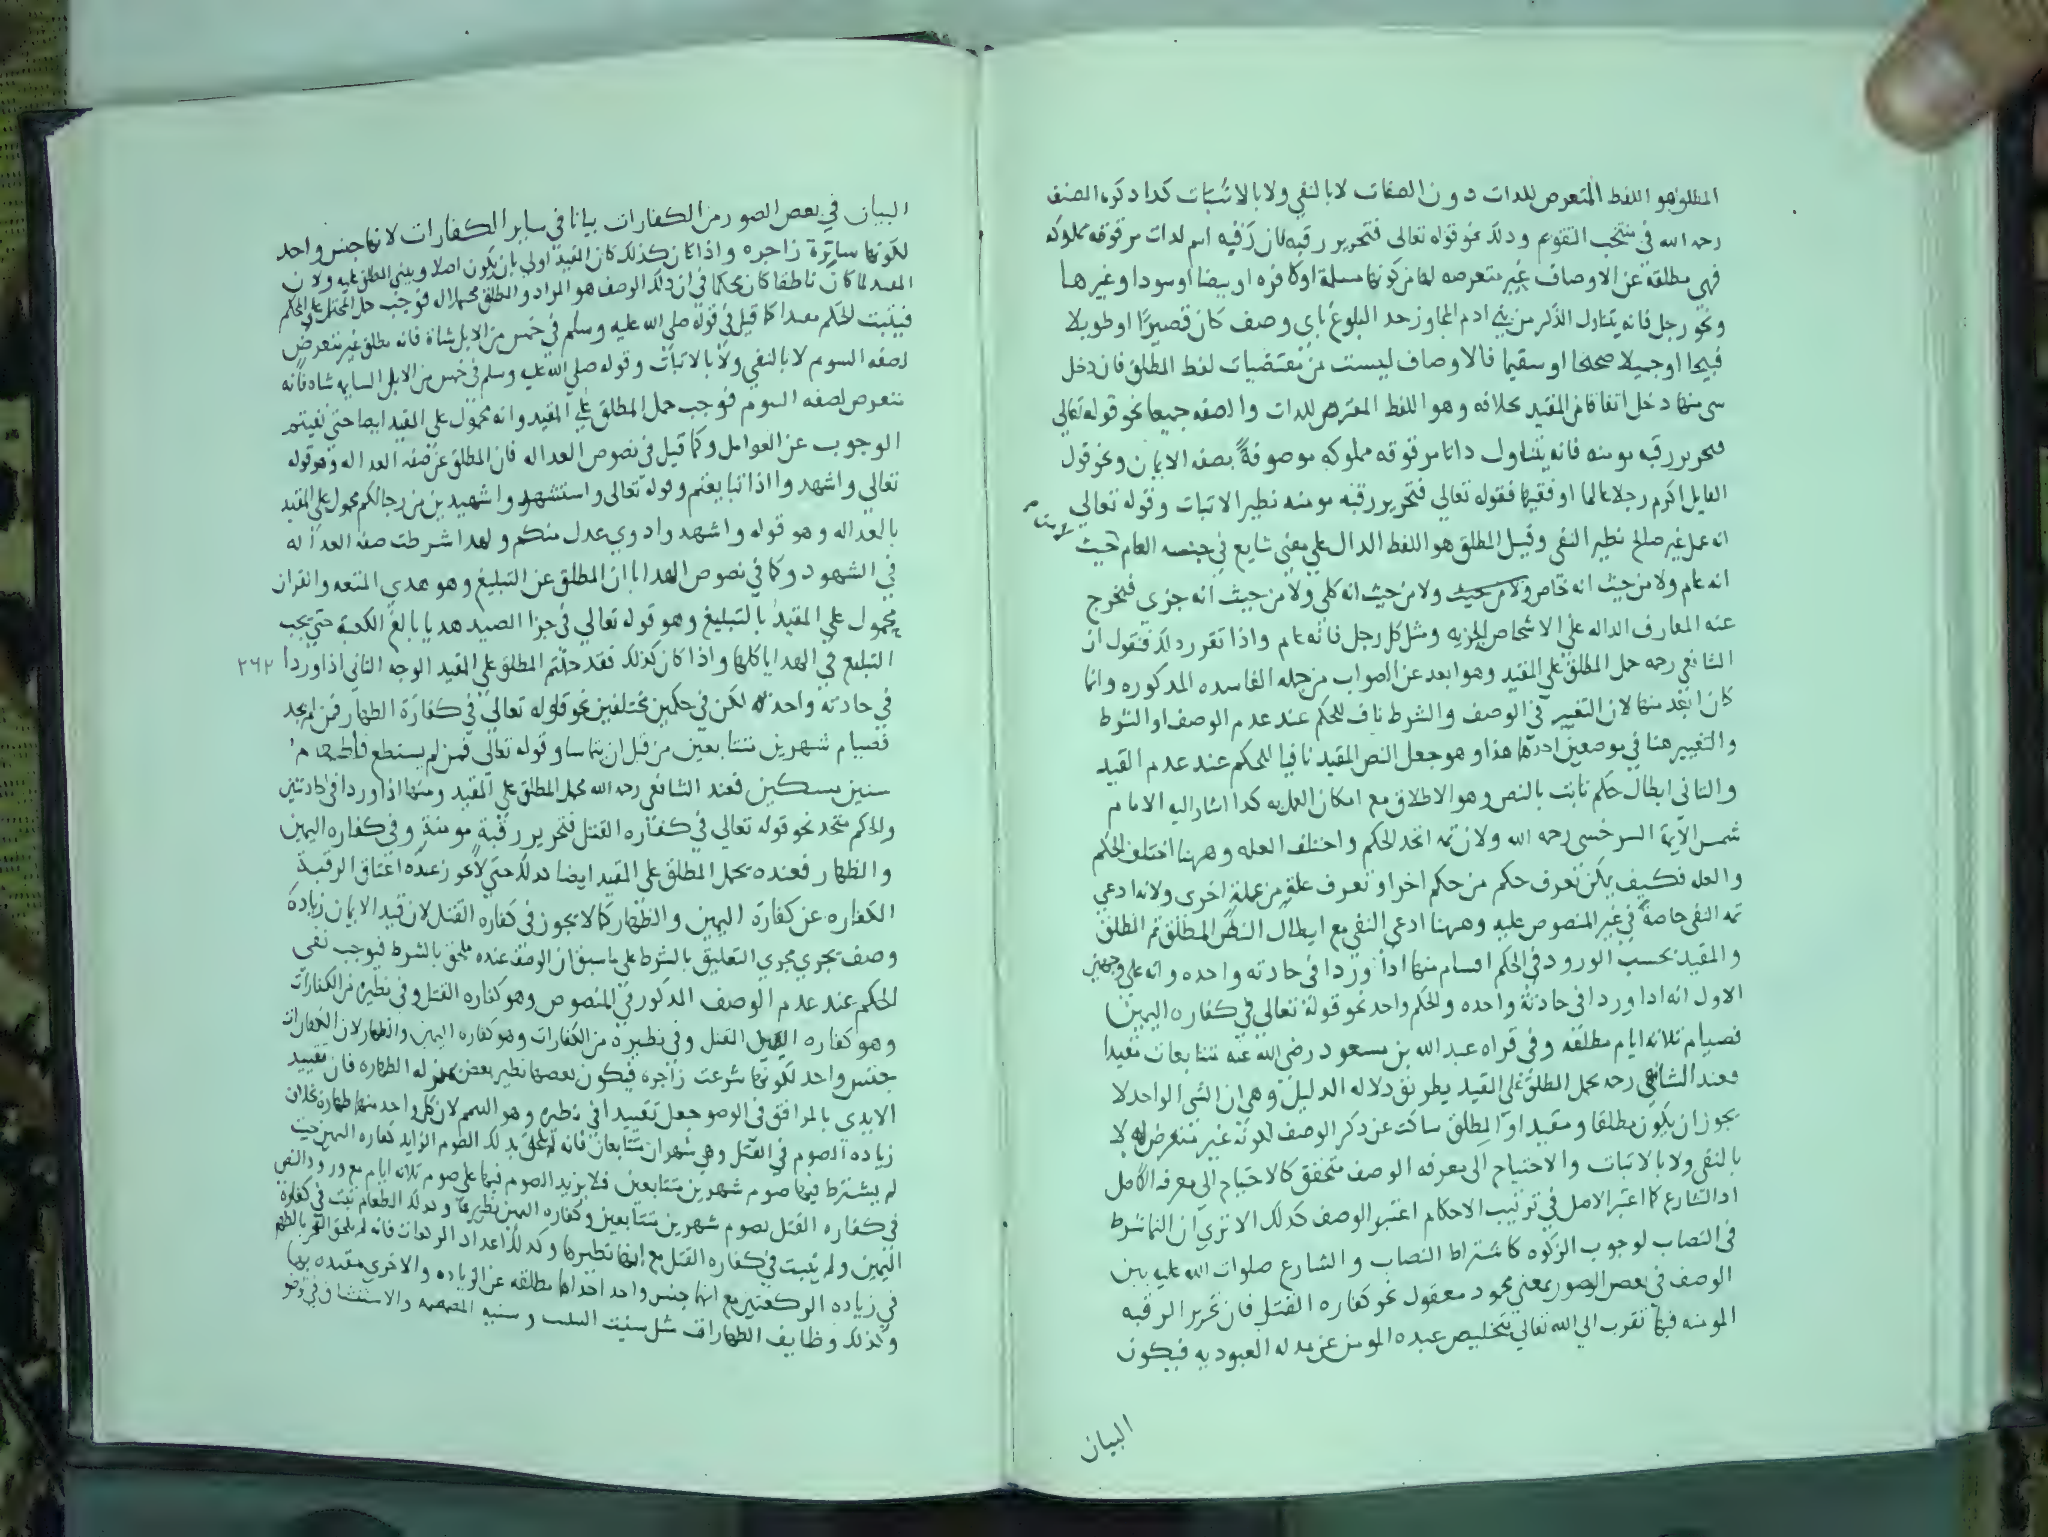 المطلق هو اللفظ المتعرض للذات دون الصفات لا بالنفي ولا بالاثبات كذا ذكره المصنف
رحمه الله في منتخب التقويم وذلك نحو قوله تعالى فتحرير رقبة فان رقبه اسم لذات مرقوقه مملوكه
فهي مطلقة عن الاوصاف غير متعرضه لها من كونها مسلمة او كافره او بيضا او سودا وغيرها
ونحو رجل فانه يتناول الذكر من بني ادم المجاوز حد البلوغ باي وصف كان قصيرًا او طويلا
قبيحا او جميلا صحيحا او سقيما فالاوصاف ليست من مقتضيات لفظ المطلق فان دخل
شي منها دخل اتفاقا والمقيد بخلافه وهو اللفظ المتعرض للذات والصفه جميعا نحو قوله تعالى
فتحرير رقبه مومنه فانه يتناول ذاتا مرقوقه مملوكه موصوفةً بصفه الايمان ونحو قول
القايل اكرم رجلا عالما او فقيها فقوله تعالى فتحرير رقبه مومنه نظير الاثبات وقوله تعالى
انه عمل غير صالح نظير النفي وقيل المطلق هو اللفظ الدال علي معني شايع في جنسه العام حيث
انه عام ولا من حيث انه خاص ولا من حيث ولا من حيث انه كلي ولا من حيث انه جزي فتخرج
عنه المعارف الداله علي الاشخاص الجزيه ومثل كل رجل فانه عام واذا تقرر ذلك فنقول ان
الشافعي رحمه حمل المطلق علي المقيد وهو ابعد عن الصواب من جمله الفاسده المذكوره وانما
كان ابعد منها لان التغيير في الوصف والشرط ناف للحكم عند عدم الوصف او الشرط
والتغيير هنا في موضعين احدهما هذا وهو جعل النص المقيد نافيا للحكم عند عدم القيد
والثاني ابطال حكم ثابت بالنص وهو الاطلاق مع امكان العمل به كذا اشار اليه الامام
شمس الايمة السرخسي رحمه الله ولان ثمه اتحد الحكم واختلف العله وههنا اختلف الحكم
والعله فكيف يمكن تعرف حكم من حكم اخر او تعرف علةٍ من علةٍ اخرى ولانه ادعي
ثمه النفي خاصةً في غير المنصوص عليه وههنا ادعي النفي مع ابطال النص المطلق ثم المطلق
والمقيد بحسب الورود في الحكم اقسام منها اذا وردا في حادثه واحده وانه علي وجهين
الاول انه اذا وردا في حادثة واحده والحكم واحد نحو قوله تعالي في كفاره اليمين
فصيام ثلاثه ايام مطلقه وفي قراه عبد الله بن مسعود رضي الله عنه متتابعات مقيدا
فعند الشافعي رحمه يحمل المطلق علي المقيد بطريق دلاله الدليل وهي ان الشي الواحد لا
يجوز ان يكون مطلقا ومقيدا والمطلق ساكت عن ذكر الوصف لكونه غير متعرض له لا
بالنفي ولا بالاثبات والاحتياج الى معرفه الوصف متحقق كالاحتياج الي معرفه الاصل
اذ الشارع كما اعتبر الاصل في ترتيب الاحكام اعتبر الوصف كذلك الا تري ان النما شرط
في النصاب لوجوب الزكوه كاشتراط النصاب والشارع صلوات الله عليه بين
الوصف في بعض الصور بمعني محمود معقول نحو كفاره القتل فان تحرير الرقبه
المومنه فيها تقرب الي الله تعالي بتخليص عبده المومن عن مذله العبوديه فيكون
البيان
البيان في بعض الصور من الكفارات بيانا في ساير الكفارات لانها جنس واحد
لكونها ساترة زاجره واذا كان كذلك كان المقيد اولي بان يكون اصلا ويبني المطلق عليه ولان
المقيد لما كان ناطقا كان محكما في ان ذلك الوصف هو المراد والمطلق محتمل له فوجب حمل المحتمل علي المحكم
فيثبت الحكم مقيدا كما قيل في قوله صلى الله عليه وسلم في خمس من الابل شاة فانه مطلق غير متعرض
لصفه السوم لا بالنفي ولا بالاثبات وقوله صلى الله عليه وسلم في خمس من الابل السايمه شاه فانه
متعرض لصفه السوم فوجب حمل المطلق علي المقيد وانه محمول علي المقيد ايضا حتي نفيتم
الوجوب عن العوامل وكما قيل في نصوص العداله فان المطلق عن صفه العداله وهو قوله
تعالي واشهدوا اذا تبايعتم وقوله تعالى واستشهدوا شهيدين من رجالكم محمول علي المقيد
بالعداله وهو قوله واشهدوا ذوي عدل منكم ولهذا شرطت صفه العداله
في الشهود وكما في نصوص الهدايا ان المطلق عن التبليغ وهو هدي المتعه والقران
محمول علي المقيد بالتبليغ وهو قوله تعالي في جزا الصيد هديا بالغ الكعبة حتي يجب
التبليغ في الهدايا كلها واذا كان كذلك فقد حملتم المطلق علي المقيد الوجه الثاني اذا وردا ٢٦٢
في حادثه واحده لكن في حكمين مختلفين نحو قوله تعالي في كفارة الظهار فمن لم يجد
فصيام شهرين متتابعين من قبل ان يتماسا وقوله تعالى فمن لم يستطع فاطعام
ستين مسكين فعند الشافعي رحمه الله يحمل المطلق علي المقيد ومنها اذا وردا في حادثتين
والحكم متحد نحو قوله تعالي في كفاره القتل فتحرير رقبة مومنة وفي كفاره اليمين
والظهار فعنده يحمل المطلق علي المقيد ايضا كذلك حتي لا يجوز عنده اعتاق الرقبة
الكفاره عن كفارة اليمين والظهار كما لا يجوز في كفاره القتل لان قيد الايمان زيادة
وصف يجري مجري التعليق بالشرط علي ما سبق ان الوصف عنده ملحق بالشرط فيوجب نفي
الحكم عند عدم الوصف المذكور في المنصوص وهو كفاره القتل وفي نظيره من الكفارات
وهو كفاره القتل وفي نظيره من الكفارات وهو كفاره اليمين والظهار لان الكفارات
جنس واحد لكونها شرعت زاجره فيكون بعضها نظير بعض بمنزله الطهاره فان تقييد
الايدي بالمرافق في الوضو جعل تقييدا في نظيره وهو التيمم لان كل واحد منهما طهاره بخلاف
زيادة الصوم في القتل وهي شهران متتابعان فانه لم يلحق بذلك الصوم الزايد كفاره اليمين حيث
لم يشترط فيها صوم شهرين متتابعين فلا يزيد الصوم فيها علي صوم ثلاثه ايام مع ورود النص
في كفاره القتل بصوم شهرين متتابعين وكفاره اليمين نظيرها وكذلك الطعام ثبت في كفارة
اليمين ولم يثبت في كفاره القتل مع انها نظيرها وكذلك اعداد الركعات فانه لم يلحق الفجر بالظهر
في زياده الركعتين مع انهما جنس واحد احداهما مطلقه عن الزياده والاخري مقيده بها
وكذلك وظايف الطهارات مثل سنية التثليث وسنيه المضمضه والاستنشاق في الوضو